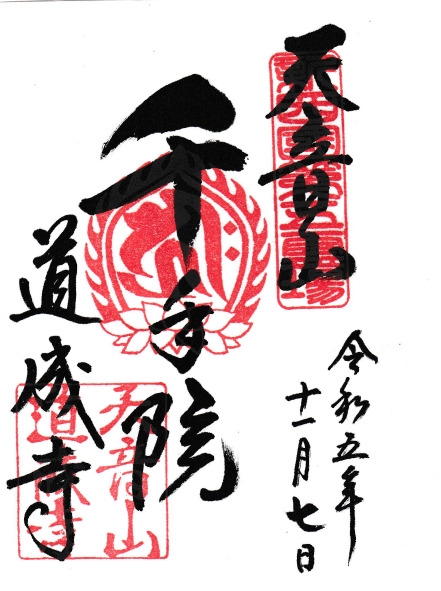 天音山
令和五年
十一月七日
千手院
道成寺
天音山
道成寺